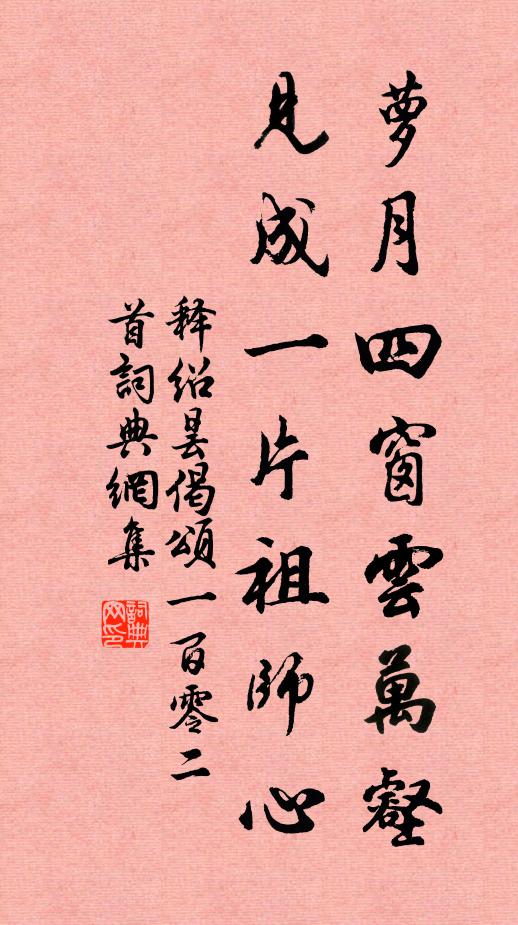 蘿月四窗雲萬壑
見成一片祖師心
釋紹曇偈頌一百零二
首詞典網集
詞典网印